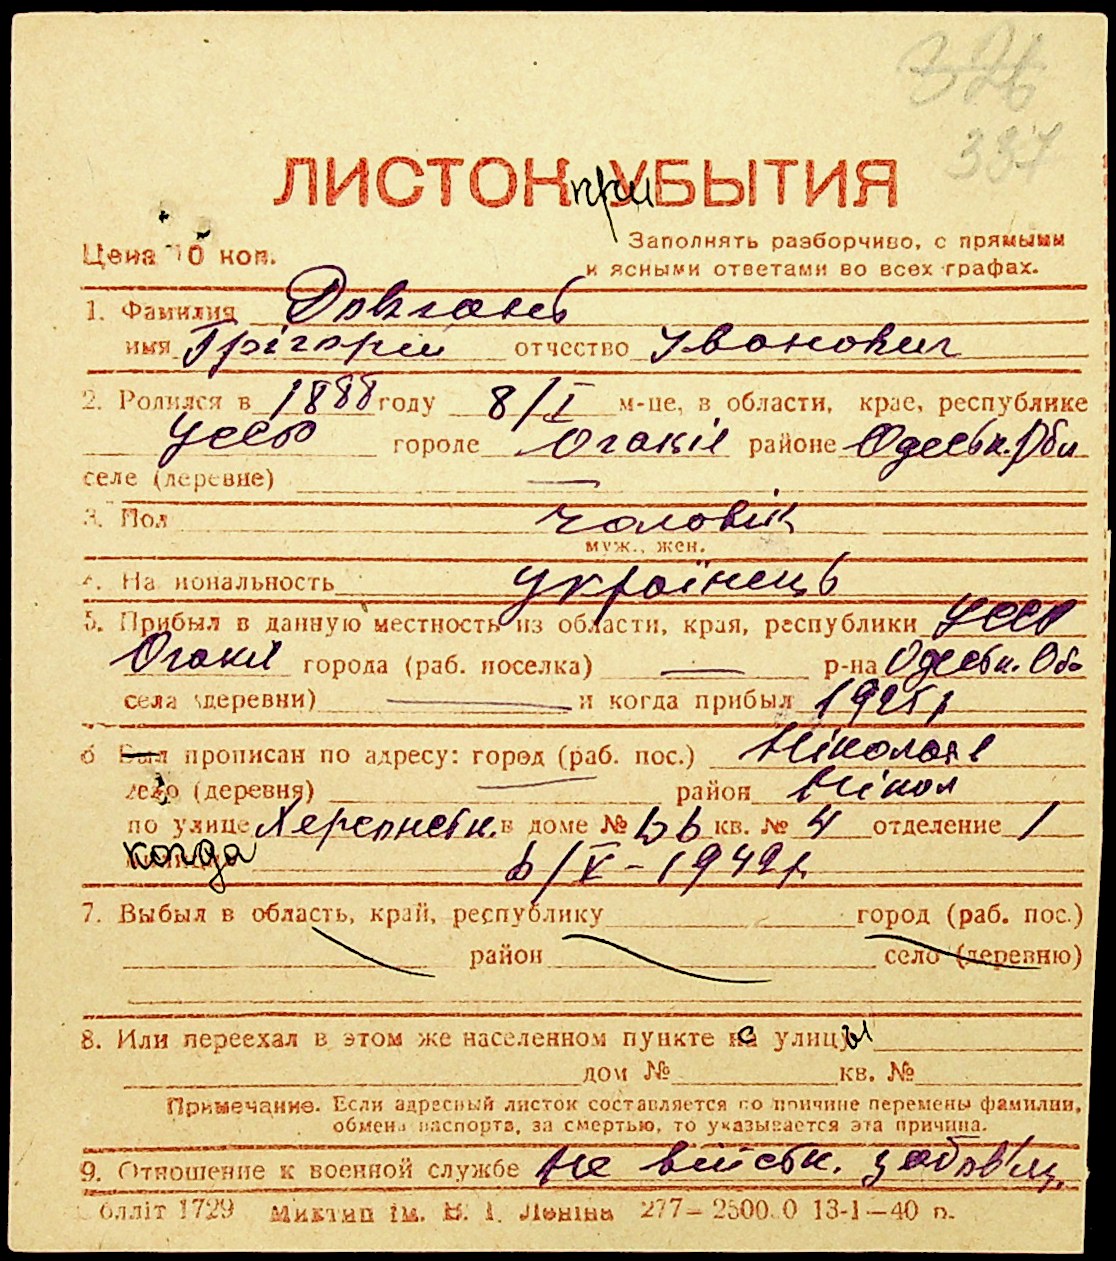 326
387
ЛИСТОК при УБЫТИЯ
Цена 10 коп.
Заполнять разборчиво, с прямыми
и ясными ответами во всех графах.
1. Фамилия Довгань
имя Грігорій отчество Іванович
2. Родился в 1888 году 8/I м-це, в области, крае, республике
УССР городе Очаків районе Одеськ. Обл
селе (деревне) —
3. Пол чоловік
муж., жен.
4. Национальность українець
5. Прибыл в данную местность из области, края, республики УССР
Очаків города (раб. поселка) — р-на Одеськ. Об
села (деревни) — и когда прибыл 1925 р
6 Был прописан по адресу: город (раб. пос.) Ніколаїв
село (деревня) — район Нікол
по улице Херсонськ. в доме № кв. № 4 отделение 1
когда 6/X - 1942 р.
7. Выбыл в область, край, республику город (раб. пос.)
район село (деревню)
8. Или переехал в этом же населенном пункте с улицы
дом № кв. №
Примечание. Если адресный листок составляется по причине перемены фамилии,
обмена паспорта, за смертью, то указывается эта причина.
9. Отношение к военной службе Не військ. зобов'яз.
блліт 1729 Миктип ім. В. І. Леніна 277—2500.0 13-1—40 п.